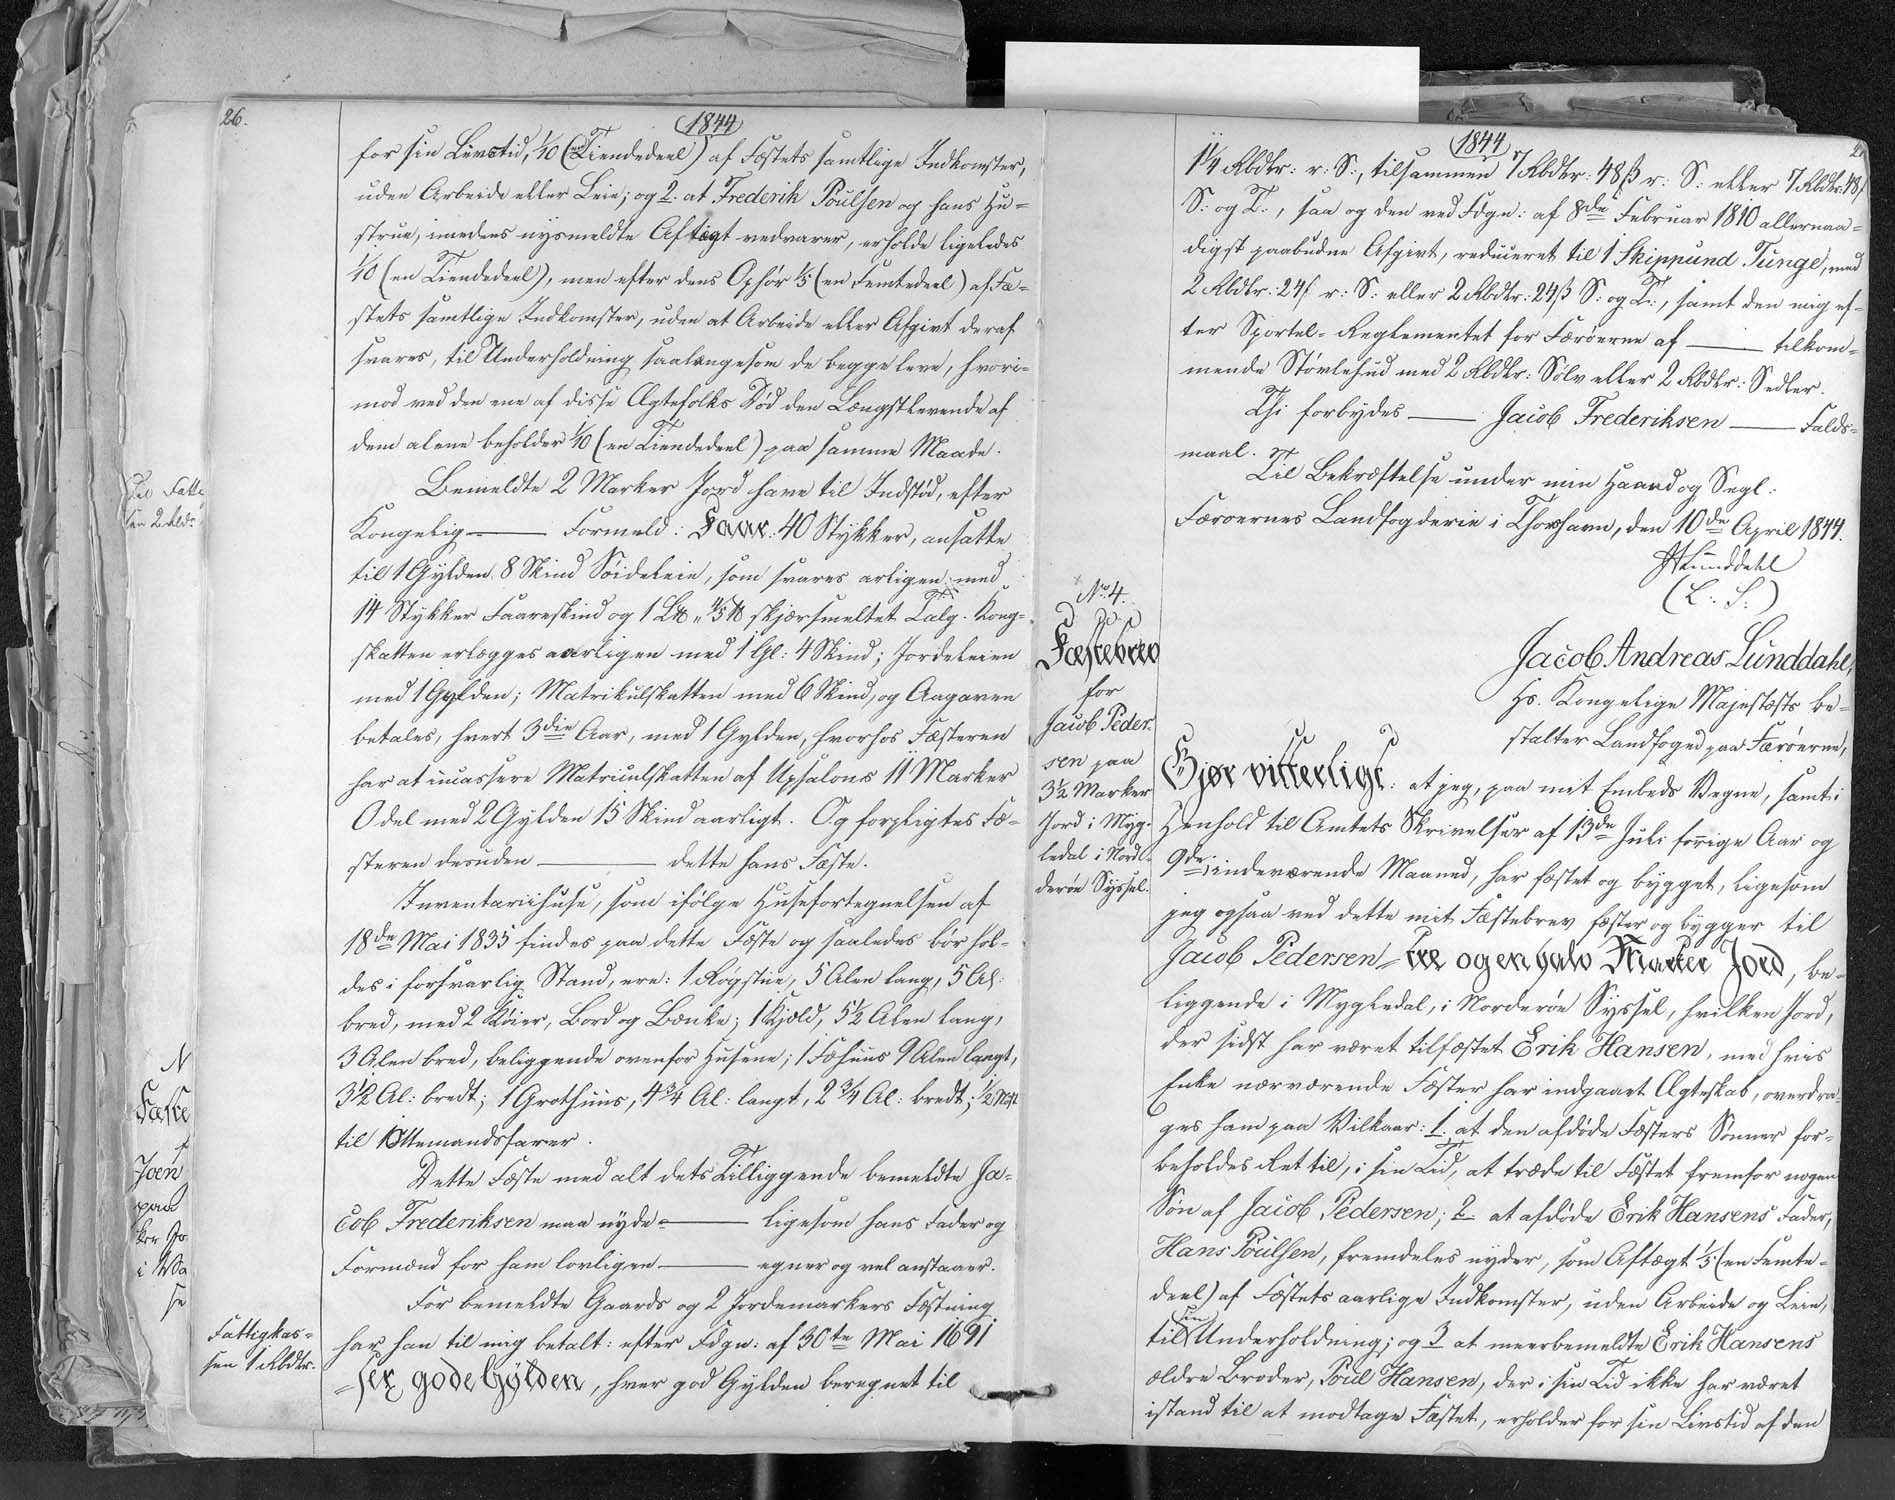 26.
1844
for sin Livstid, 1/10 (en Tiendedeel) af Fæstets samtlige Indkomster,
uden Arbeide eller Leie; og 2. at Frederik Poulsen og hans Hu-
strue, imedens nysmeldte Aftægt vedvarer, erholde ligeledes
1/10 (en Tiendedeel), men efter dens Ophør 1/5 (en Femtedeel) af Fæ-
stets samtlige Indkomster, uden at Arbeide eller Afgivt deraf
svares, til Underholdning saalængesom de begge leve, hvori-
mod ved den ene af disse Ægtefolks Død den Længstlevende af
dem alene beholder 1/10 (en Tiendedeel) paa samme Maade.
Bemeldte 2 Marker Jord have til Indstød, efter
Kongelig — Formeld: Faar: 40 Stykker, ansatte
til 1 Gylden 8 Skind Søideleie, som svares arligen med
14 Stykker Faareskind og 1 L℔ 4/5 ℔ skjærsmeltet Talg. Kong-
skatten erlægges aarligen med 1 Gl: 4 Skind; Jordeleien
med 1 Gylden; Matrikulskatten med 6 Skind, og Aagaven
betales, hvert 3die Aar, med 1 Gylden, hvorhos Fæsteren
har at incassere Matriculskatten af Upsalons 11 Marker
Odel med 2 Gylden 15 Skind aarligt. Og forpligtes Fæ-
steren desuden — dette hans Fæste.
Inventariihuse, som ifølge Husefortegnelsen af
18de Mai 1835 findes paa dette Fæste og saaledes bør hol-
des i forsvarlig Stand, ere: 1 Røgstue, 5 Alen lang, 5 Al:
bred, med 2 Køier, Bord og Bænke; 1 Kjæld, 5 1/2 Alen lang,
3 Alen bred, beliggende ovenfor Husene; 1 Fæhuus 9 Alen langt,
3 1/2 Al: bredt; 1 Grothuus, 4 3/4 Al: langt, 2 3/4 Al: bredt; 1/2 Nøst
til 1 Ottemandsfarer.
Dette Fæste med alt dets Tilliggende bemeldte Ja-
cob Frederiksen maa nyde — ligesom hans Fader og
Formænd for ham lovligen — egner og vel anstaaer.
For bemeldte Gaards og 2 Jordemarkers Fæstning
Fattigkas-
sen 1 Rbdlr.
har han til mig betalt: efter Fdgn: af 30te Mai 1691
sex gode Gylden, hver god Gylden beregnet til
1844
1 1/4 Rbdlr: r: S:, tilsammen 7 Rbdlr: 48 ß r: S: eller 7 Rbdlr: 48 ß
S: og T:, saa og den ved Fdgn: af 8de Februar 1810 allernaa-
digst paabudne Afgivt, reduceret til 1 Skippund Tunge, med
2 Rbdlr: 24 ß r: S: eller 2 Rbdlr: 24 ß S: og T:, samt den mig ef-
ter Sportel-Reglementet for Færøerne af — tilkom-
mende Støvlehud med 2 Rbdlr: Sølv eller 2 Rbdlr: Sedler.
Thi forbydes — Jacob Frederiksen — Falds-
maal.
Til Bekræftelse under min Haand og Segl:
Færoernes Landfogderie i Thorshavn, den 10de April 1844.
Lunddahl
(L. S.)
No 4.
Fæstebrev
for
Jacob Peder-
sen paa
3 1/2 Marker
Jord i Myg-
ledal i Nord-
derøe Syssel.
Jacob Andreas Lunddahl,
Hs. Kongelige Majestæts be-
stalter Landfoged paa Færøerne,
Gjør vitterligt: at jeg, paa mit Embeds Vegne, samt i
Henhold til Amtets Skrivelser af 13de Juli forrige Aar og
9de indeværende Maaned, har fæstet og bygget, ligesom
jeg ogsaa ved dette mit Fæstebrev fæster og bygger til
Jacob Pedersen tre og en halv Marker Jord, be-
liggende i Mygledal, i Norderøe Syssel, hvilken Jord,
der sidst har været tilfæstet Erik Hansen, med hvis
Enke nærværende Fæster har indgaaet Ægteskab, overdra-
ges ham paa Vilkaar: 1. at den afdøde Fæsters Sønner for-
beholdes Ret til, i sin Tid, at træde til Fæstet fremfor nogen
Søn af Jacob Pedersen; 2. at afdøde Erik Hansens Fader,
Hans Poulsen, fremdeles nyder, som Aftægt 1/5 (en Femte-
deel) af Fæstets aarlige Indkomster, uden Arbeide og Leie,
til sin Underholdning; og 3 at meerbemeldte Erik Hansens
ældre Broder, Poul Hansen, der i sin Tid ikke har været
istand til at modtage Fæstet, erholder for sin Livstid af den